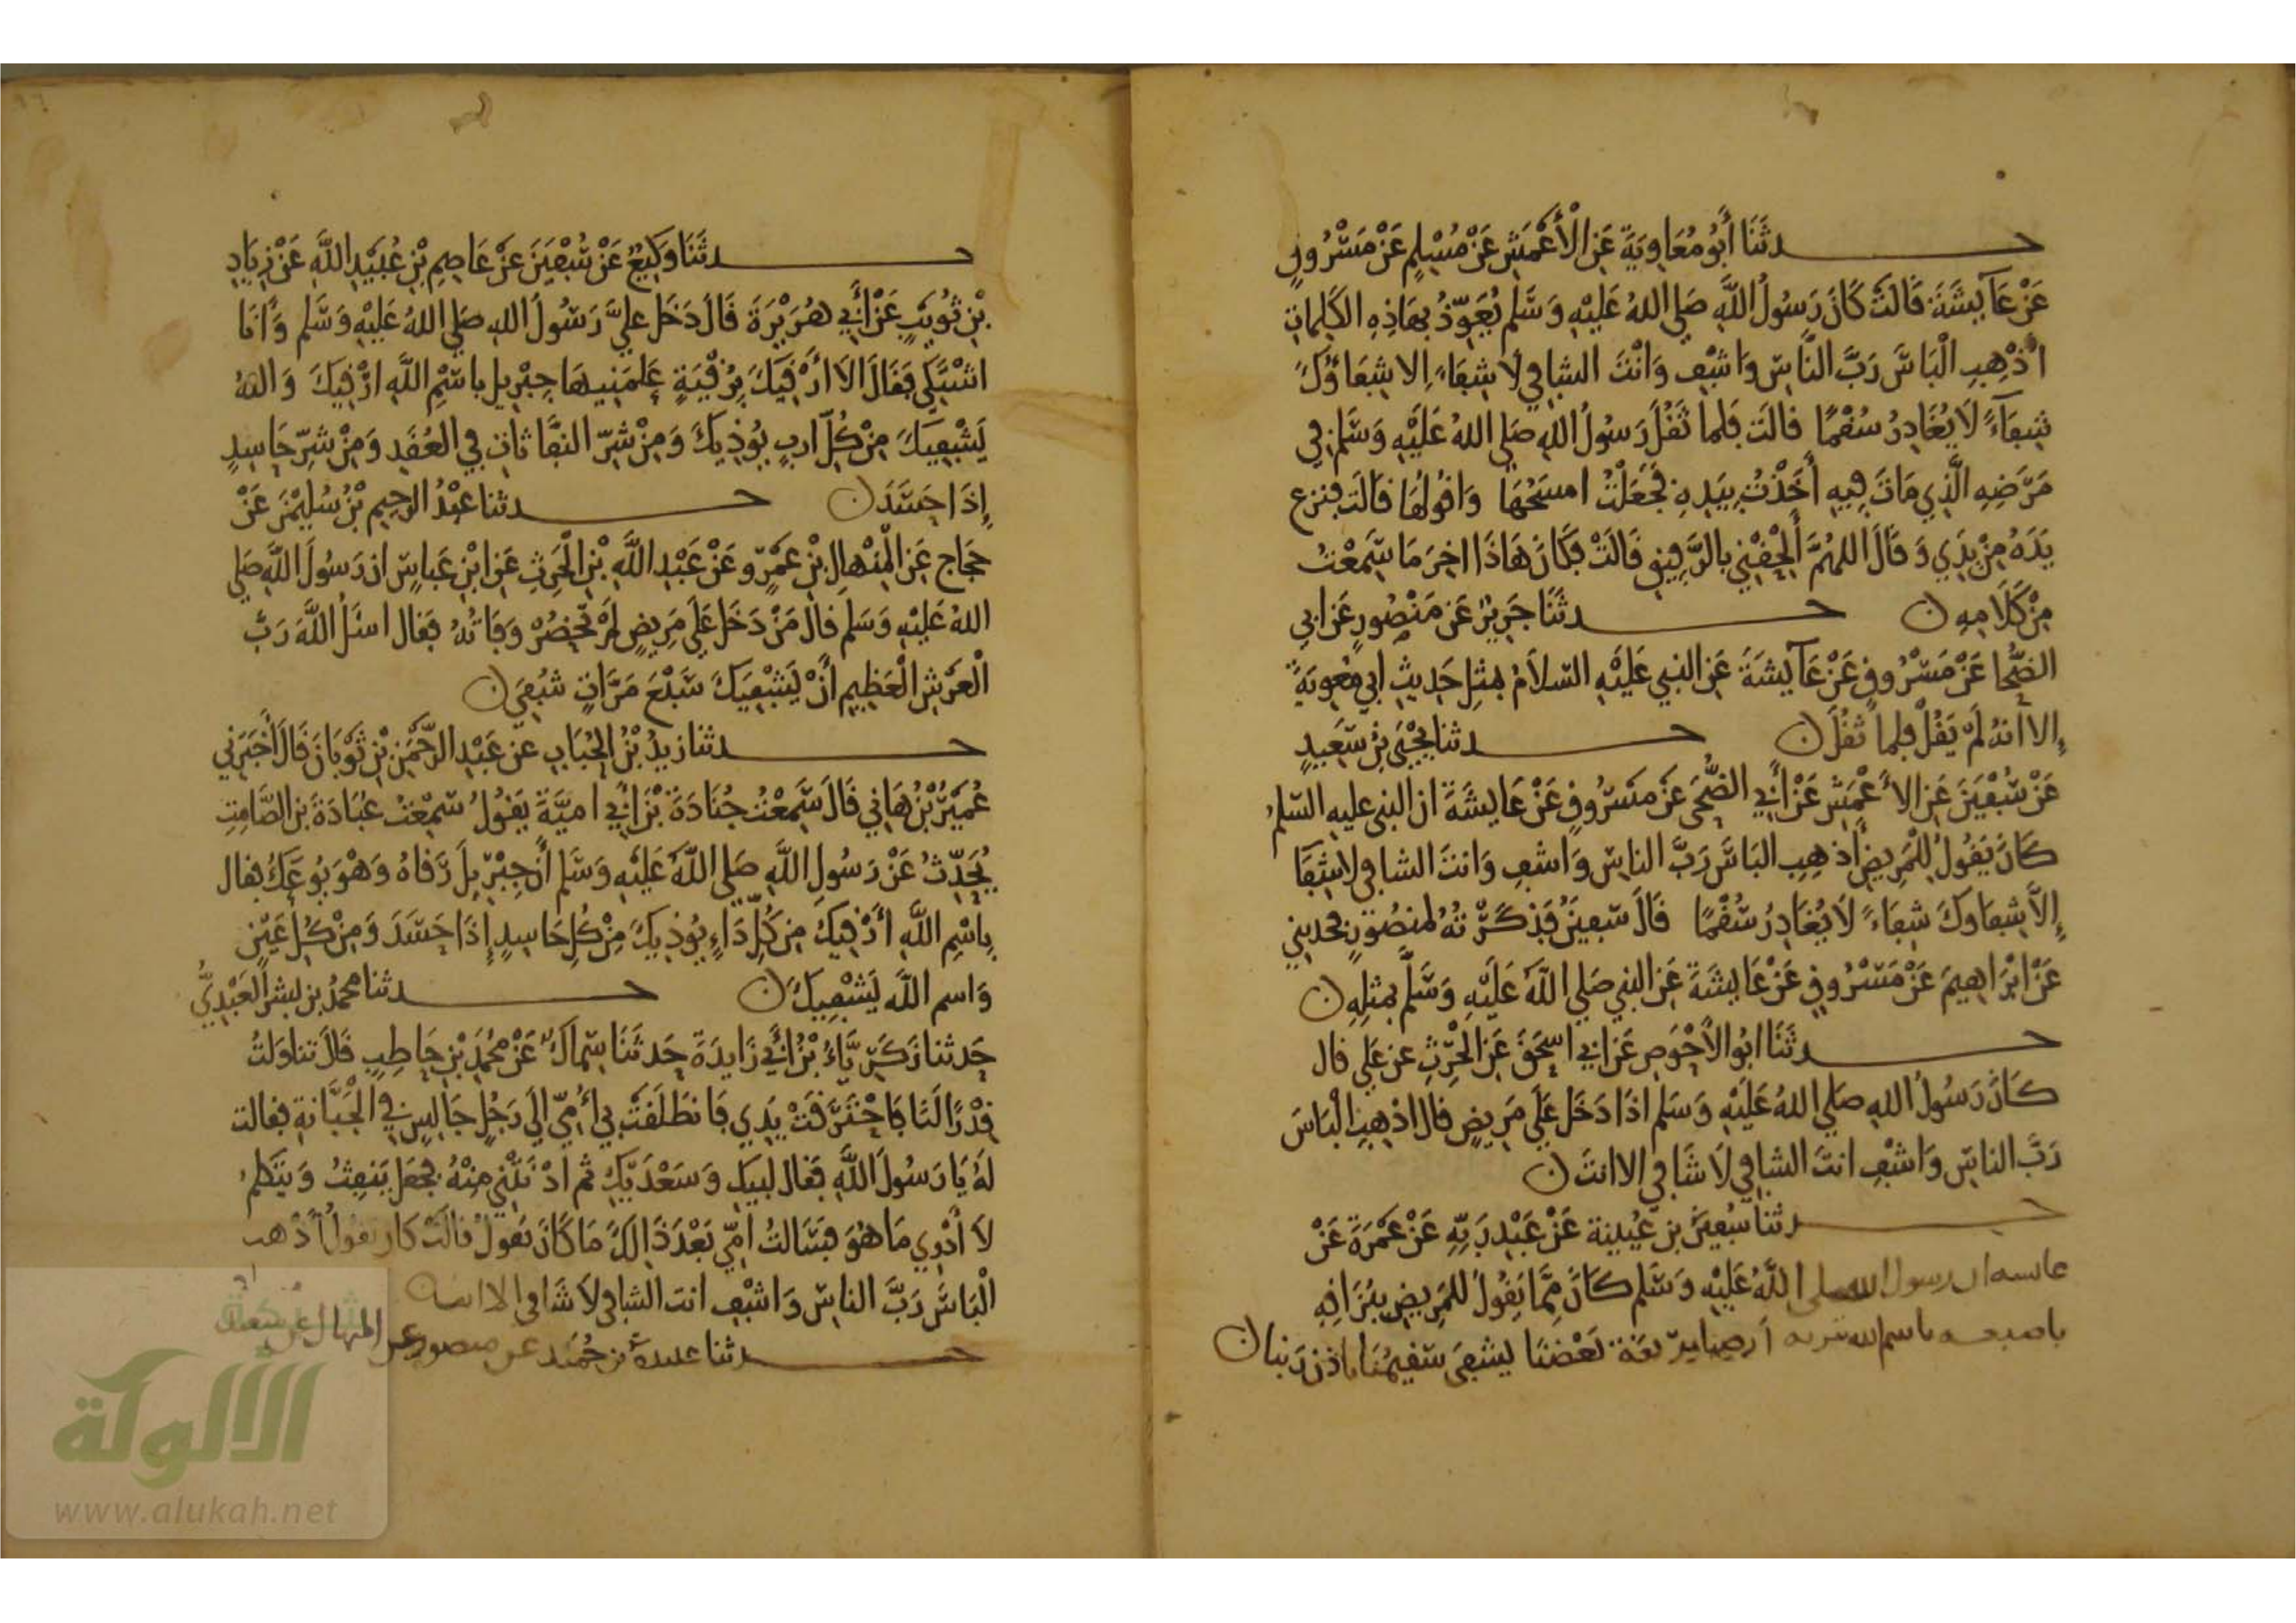 حدثَنَا أَبُو مُعَاوِيَةَ عَنِ الْأَعْمَشِ عَنْ مُسْلِمٍ عَنْ مَسْرُوقٍ
عَنْ عَآيِشَةَ قَالَتْ كَانَ رَسُولُ اللَّهِ صَلي اللهُ عَلَيْهِ وَسَلَّم يُعَوِّذُ بِهَاذِهِ الكَلِمَاتِ
اذْهِبِ الْبَاسَ رَبَّ النَّاسِ وَاشْفِ وَانْتَ الشافي لَا شِفَاءَ الا شِفَاؤُكَ
شِفَآءً لَا يُغَادِرُ سُقْمًا قالَت فَلما ثَقُلَ رَسُولُ اللهِ صَلي اللهُ عَلَيْهِ وَسَلَم فِي
مَرَضِهِ الَّذِي مَاتَ فِيهِ أَخَذْتُ بِيَدِهِ فَجَعَلْتُ امسَحُهَا وَاقُولُهَا قَالَت فنزع
يَدَهُ مِنْ يَدِي وَقَالَ اللهُمَّ أَلْحِقْنِي بالرَّفِيقِ قَالَتْ فَكَانَ هَاذَا اخِرَ مَا سَمِعْتُ
مِنْ كَلَامِهِ ن حدثَنَا جَرِيرٌ عَن مَنْصُورٍ عَن ابي
الضُّحَا عَنْ مَسْرُوقٍ عَنْ عَآيِشَةَ عَنِ النبي عَلَيْهِ السَّلَامُ بمثلِ حَدِيثِ ابي مُعوِيَةَ
إِلا انهُ لَمْ يَقُلْ فلما ثَقُلَ ن حدثنا يَحْيَى بْنُ سَعِيدٍ
عَنْ سُفْيَنَ عَنِ الأَعْمَشِ عَنْ أَبِي الضُّحَى عَنْ مَسْرُوقٍ عَنْ عَايِشَةَ ان النبي عليه السَّلم
كَانَ يَقُولُ لِلْمَرِيضِ أَذهِبِ البَاسَ رَبَّ الناسِ وَاشفِ وَانتَ الشافِي لا شِفَا
إِلَّا شِفَاوكَ شِفَاءً لَا يُغَادِرُ سُقْمًا قَالَ سُفينُ فَذكَرْتُهُ لِمَنصُورٍ فحدثني
عَنْ ابْرَاهِيمَ عَنْ مَسْرُوقٍ عَنْ عَايِشَةَ عَنِ النبي صَلي اللهُ عَلَيْهِ وَسَلَّم بمثلِهِ ن
حدثَنَا ابُو الاَحْوَصِ عَن ابي اسحَقَ عَنِ الْحَرِثِ عن عَلي قال
كَانَ رَسُولُ اللهِ صَلي اللهُ عَلَيْهِ وَسَلم اذَا دَخَلَ عَلَي مَرِيضٍ قال اذْهِبِ الْبَاسَ
رَبَّ الناسِ وَاشْفِ انتَ الشافي لَا شَافي الا انتَ ن
حدثنا سُفينُ بن عُيَينة عَنْ عَبْدِ رَبِّهِ عَنْ عَمْرَةَ عَنْ
عايشه ان رسول الله صلى اللَّهُ عَلَيْهِ وَسَلم كَانَ مِمَّا يَقُولُ لِلْمَرِيضِ بِبُزَاقِهِ
باصبعه باسم الله تربه أرضنا بِرِيقَة بَعْضنَا ليشفَى سَقِيمُنَا باذن رَبنا ن
حدثَنَا وَكِيعٌ عَنْ سُفْيَنَ عَنْ عَاصِمِ بْنِ عُبَيْدِ اللَّهِ عَنْ زِيَادِ
بْنِ ثُوَيْبٍ عَنْ أَبِي هُرَيْرَةَ قَالَ دَخَلَ عليَّ رَسُولُ اللهِ صَلي اللهُ عَلَيْهِ وَسَّلم وَأَنَا
اشْتَكِي فَقَالَ الَا أَرْقِيكَ بِرُقْيَةٍ عَلمَنِيهَا جِبْرِيل باسْمِ اللَّهِ ارْقِيكَ وَاللهُ
يَشْفِيكَ مِنْ كُلِّ اربٍ يُوذِيكَ وَمِنْ شَرِّ النفَّاثاتِ فِي العُقَدِ وَمِنْ شَرِّ حَاسِدٍ
إِذَا حَسَدَ ن حدثنا عَبْدُ الرحِيمِ بْنُ سُلَيْمَنَ عَنْ
حَجَاج عَنِ الْمِنْهالِ بْنِ عَمْرٍو عَنْ عَبْدِ اللَّهِ بْنِ الْحَرِثِ عَنِ ابْنِ عَباسٍ ان رَسُولَ اللَّهِ صَلي
اللهُ عَلَيْهِ وَسَلم قالَ مَنْ دَخَلَ عَلَي مَرِيضٍ لَمْ تَحْضُرْ وَفَاتُهُ فَقال اسْئَلُ اللَّهَ رَبَّ
الْعَرْشِ الْعَظِيمِ أَنْ يَشْفِيَكَ سَبْعَ مَرَّاتٍ شُفِيَ ن
حدثنا زيدُ بْنُ الحُبَابِ عن عَبْدِ الرَّحْمَنِ بْنِ ثَوْبَانَ قَالَ أَخْبَرَنِي
عُمَيْرُ بْنُ هَانِي قَالَ سَمِعْتُ جُنَادَةَ بْنَ أَبِي امَيَّةَ يَقُولُ سَمِعْتُ عُبَادَةَ بْنَ الصَّامِتِ
يُحَدِّثُ عَنْ رَسُولِ اللَّهِ صَلي اللَّهُ عَلَيْهِ وَسَّلم أَنَّ جِبْرِيلَ رَقَاهُ وَهْوَ يُوعَكُ فقال
بِاسْمِ اللَّهِ أَرْقِيكَ مِن كُلِّ دَاءٍ يُوذِيكَ مِنْ كُلِّ حَاسِدٍ إِذَا حَسَدَ وَمِنْ كُلِّ عَيْنٍ
وَاسم اللَّهِ يَشْفِيكَ ن حدثنا محمدُ بن بشر العَبْدِيُّ
حَدثنا زَكَرِيَّاءُ بْنُ أَبِي زَايدَةَ حَدثَنَا سِمَاكٌ عَنْ مُحَمَّدِ بْنِ حَاطِبٍ قَالَ تناوَلتُ
قِدْرًا لَنَا فَاحْتَرَقَتْ يَدِي فَانطَلَقَتْ بِي أُمِّي الَي رَجُلٍ جَالِسٍ فِي الْجَبَّانةِ فقالت
لَهُ يَا رَسُولَ اللَّهِ فَقال لَبيكِ وَسَعْدَيْكِ ثم ادْنَتْنِي مِنْهُ فجَعَل يَنفِثُ وَيَتكلمُ
لَا أَدْرِي مَا هُوَ فَسَالتُ امِّي بَعْدَ ذَالِكَ مَا كَانَ يَقولُ قالَتْ كان يقولُ أَذْهب
الْبَاسَ رَبَّ الناسِ وَاشْفِ انت الشافي لَا شَافي الا انت
حدثنا عبيدة بن حُمَيْد عن منصور عن المنهال عن سعيد
شبكة
الألوكة
www.alukah.net